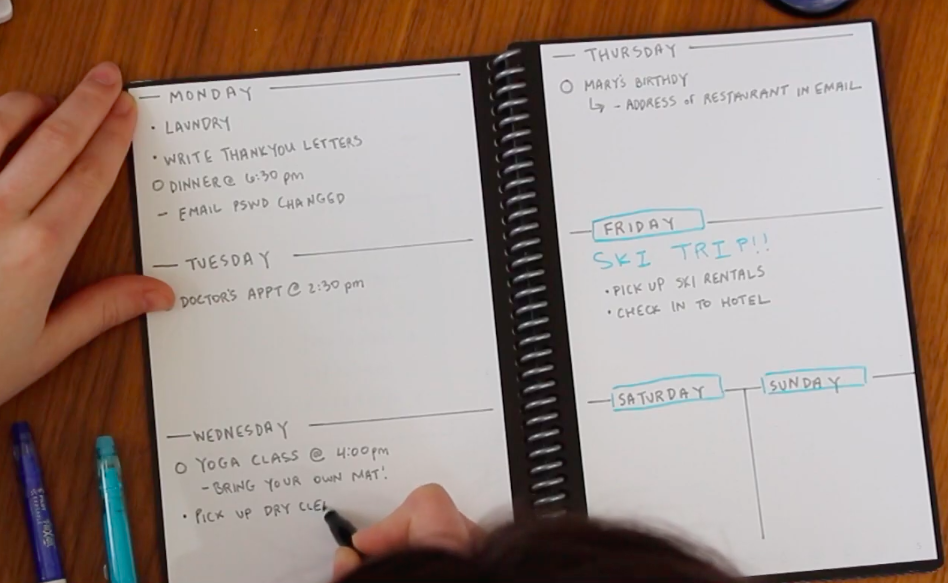 MONDAY
• LAUNDRY
• WRITE THANKYOU LETTERS
O DINNER @ 6:30 pm
- EMAIL PSWD CHANGED
TUESDAY
DOCTOR'S APPT @ 2:30 pm
WEDNESDAY
O YOGA CLASS @ 4:00pm
- BRING YOUR OWN MAT!
• PICK UP DRY CLE
THURSDAY
O MARY'S BIRTHDY
↳ - ADDRESS of RESTAURANT IN EMAIL
FRIDAY
SKI TRIP!!
• PICK UP SKI RENTALS
• CHECK IN TO HOTEL
SATURDAY
SUNDAY